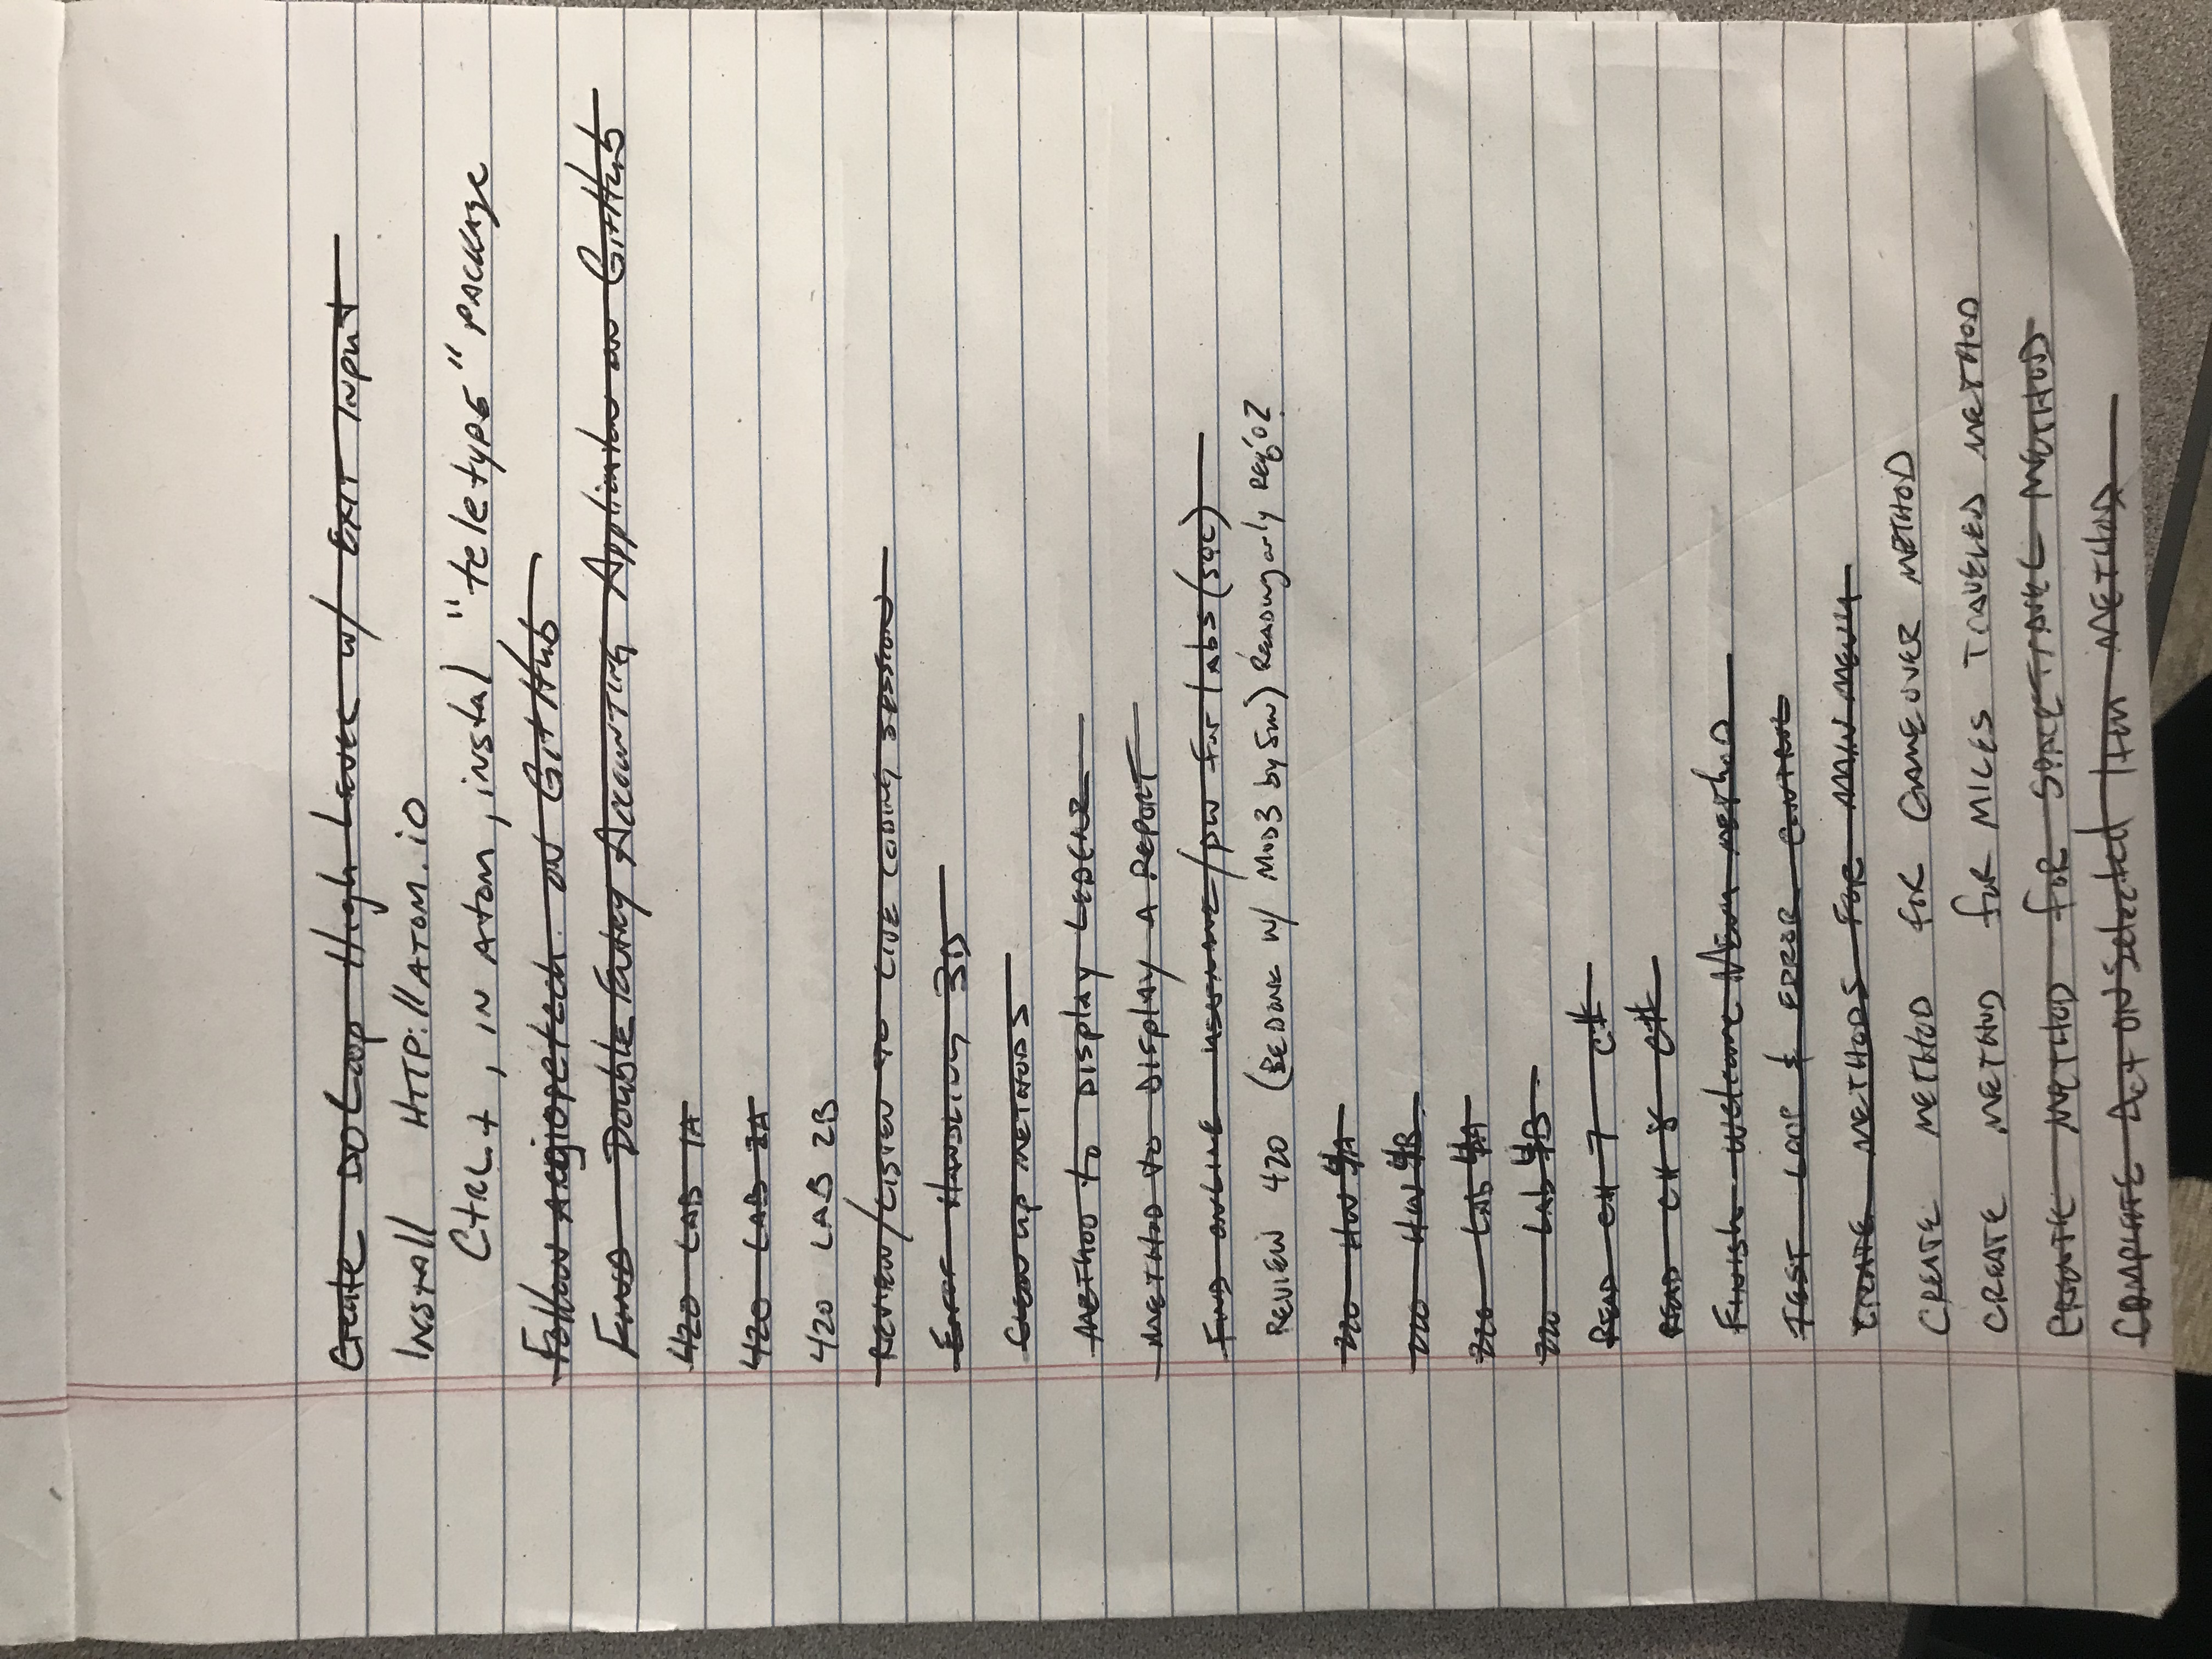 Create DO Loop High Level w/ EXIT Input
INSTALL HTTP://ATOM.iO
CTRL + , IN ATOM, instal "teletype" PACKAGE
Follow Argiopetech on GitHub
FIND Double Entry Accounting Application on GitHub
420 LAB 1A
420 LAB 2A
420 LAB 2B
REVIEW/LISTEN TO LIVE CODING SESSION
Error HANDLING 3D
Clean up METHODS
METHOD to DISPLAY LEDGER
METHOD to DISPLAY A REPORT
FIND ONLINE username/pw for labs (SQL)
REVIEW 420 (BE DONE W/ MOD3 by Sun) Reading only Req'd
220 HW 4A
220 HW 4B
220 LAB 4A
220 LAB 4B
READ CH 7 C#
READ CH 8 C#
FINISH Welcome Menu METHOD
TEST LOOP & ERROR CONTROL
CREATE METHODS FOR MAIN MENU
CREATE METHOD FOR GAMEOVER METHOD
CREATE METHOD FOR MILES TRAVELED METHOD
CREATE METHOD FOR METHOD
COMPLETE Act ON Selected Item METHOD